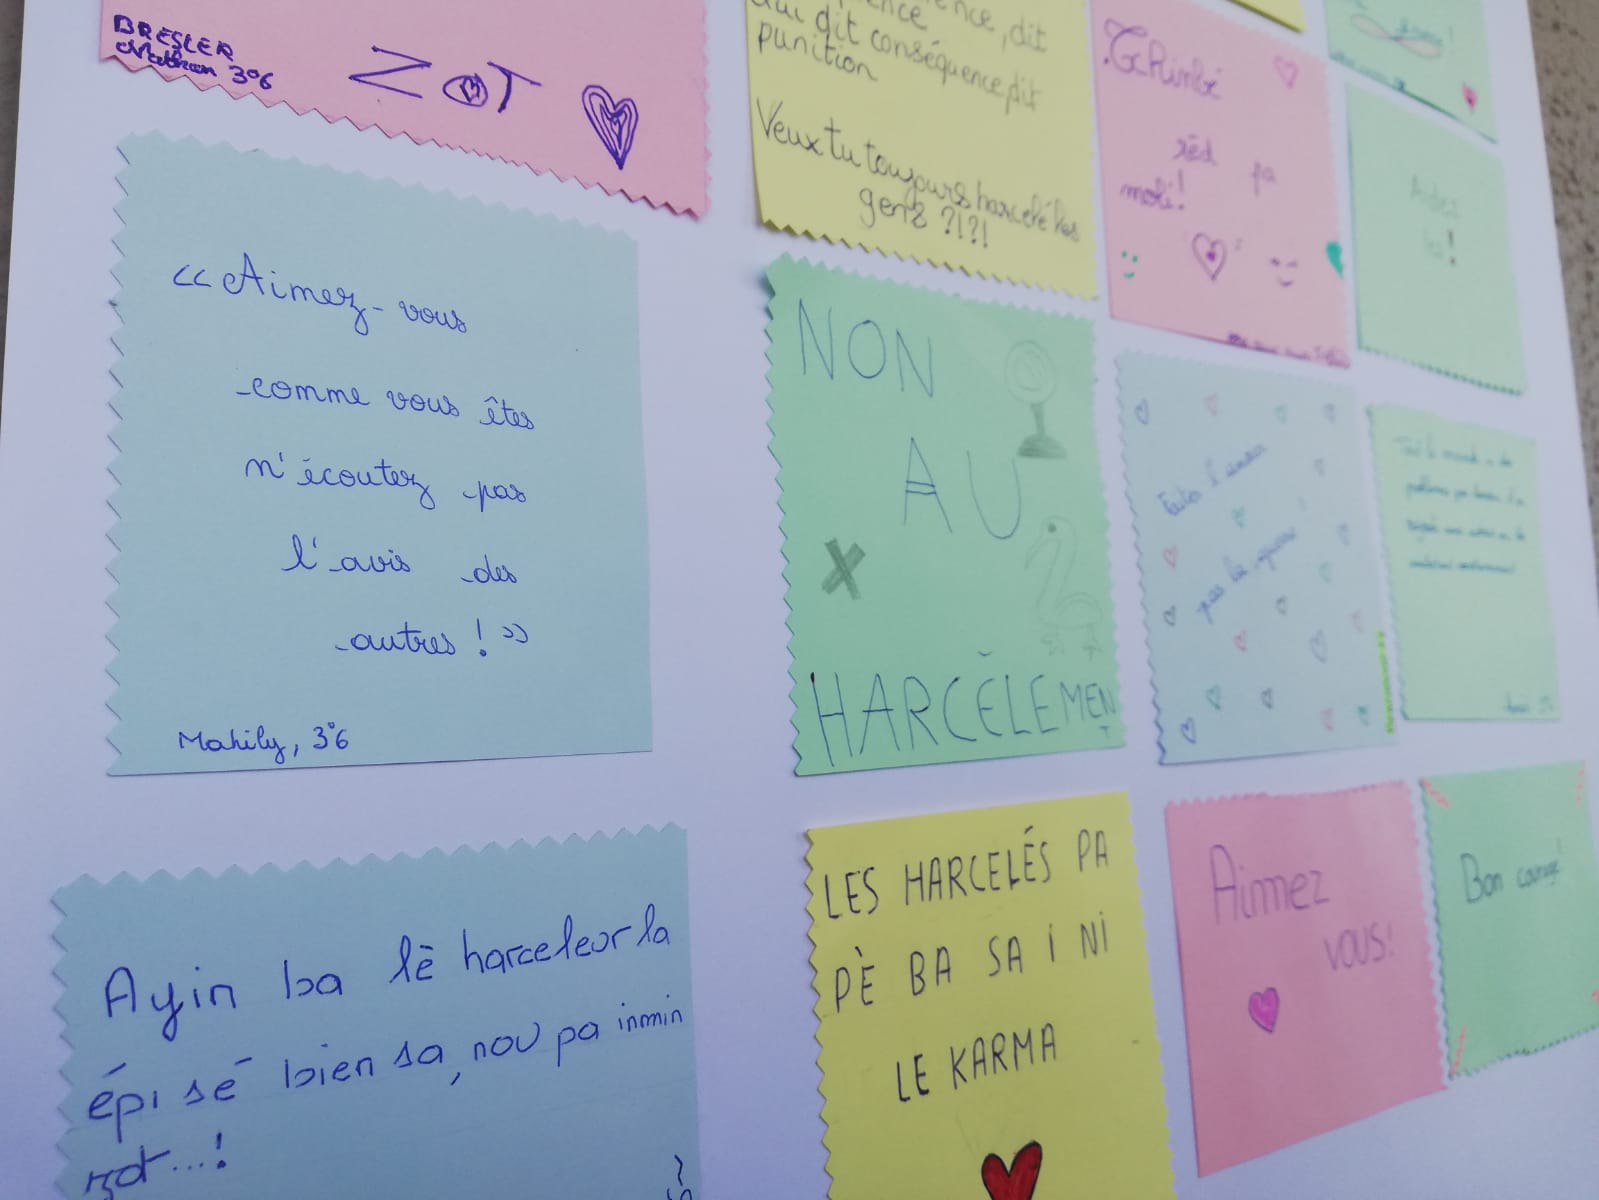 BRESLER
Nathan 3°6
ZOT
dit
qui dit conséquence, dit
punition
Veux tu toujours harcelé les
gens ?!?!
Tchimbé
rèd pa
moli!
Aidez
les!
«Aimez-vous
comme vous êtes
n'écoutez pas
l'avis des
autres ! »
Mahily, 3°6
NON
AU
HARCÈLEMENT
Faites l'amour
pas la guerre
Tout le monde a des
Ayin ba lè harceleur la
épi sé bien sa, nou pa inmin
zot...!
LES HARCELÉS PA
PÈ BA SA I NI
LE KARMA
Aimez
vous!
Bon courage